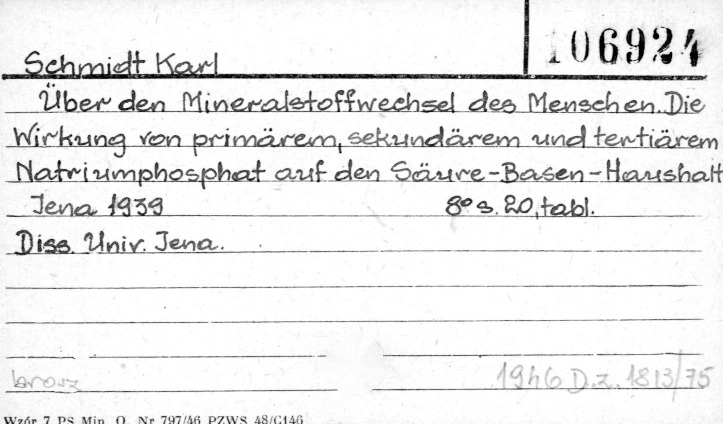 106924
Schmidt Karl
Über den Mineralstoffwechsel des Menschen. Die
Wirkung von primärem, sekundärem und tertiärem
Natriumphosphat auf den Säure-Basen-Haushalt
Jena 1939 8° s. 20, tabl.
Diss. Univ. Jena.
brosz 1946 D.z. 1813/75
Wzór 7 PS Min. O. Nr 797/46 PZWS 48/G146